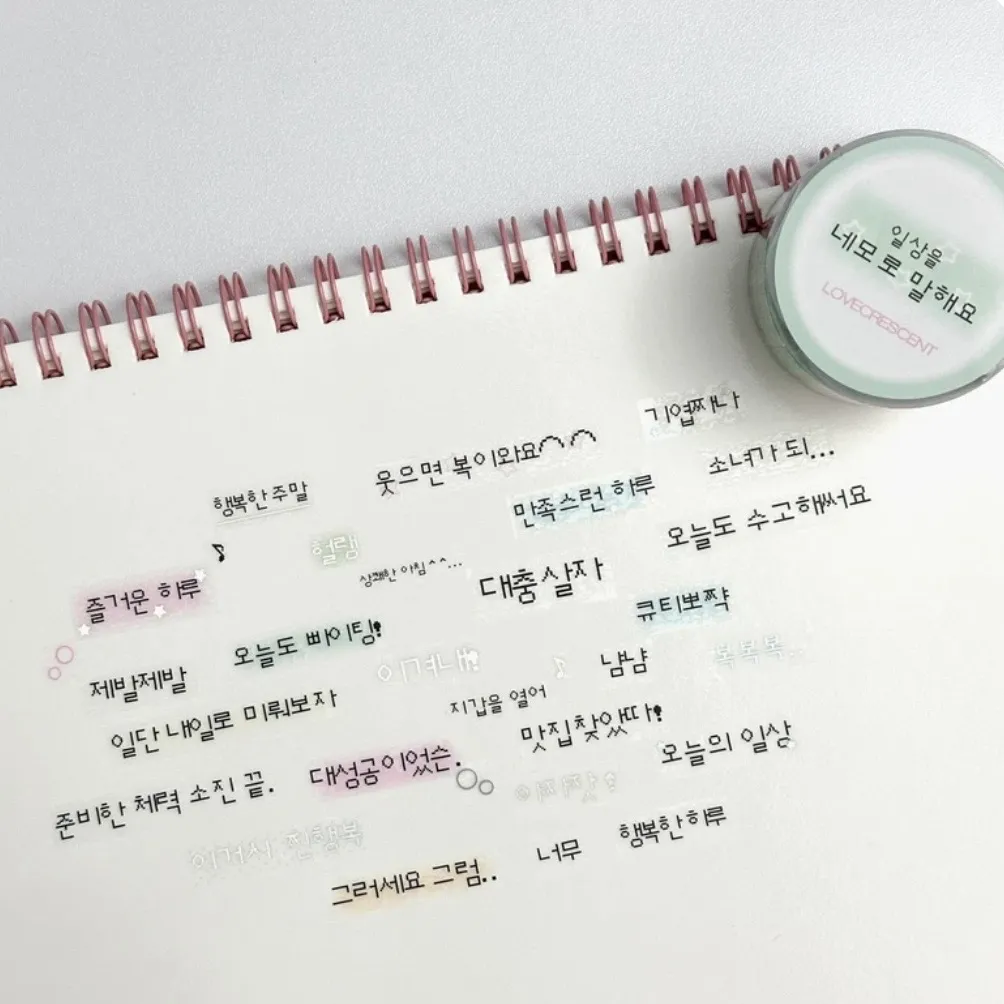 일상을
네모로 말해요
LOVECRESCENT
웃으면 복이와요
행복한 주말
만족스런 하루
오늘도
헐랭
상쾌한 아침^^...
대충살자
즐거운 하루
큐티뽀짝
오늘도
제발제발
냠냠
복복복..
지갑을 열어
일단 내일로 미뤄보자
오늘의 일상
대성공이었슨.
준비한 체력 소진 끝.
이거시 찐행복
너무 행복한 하루
그러세요 그럼..